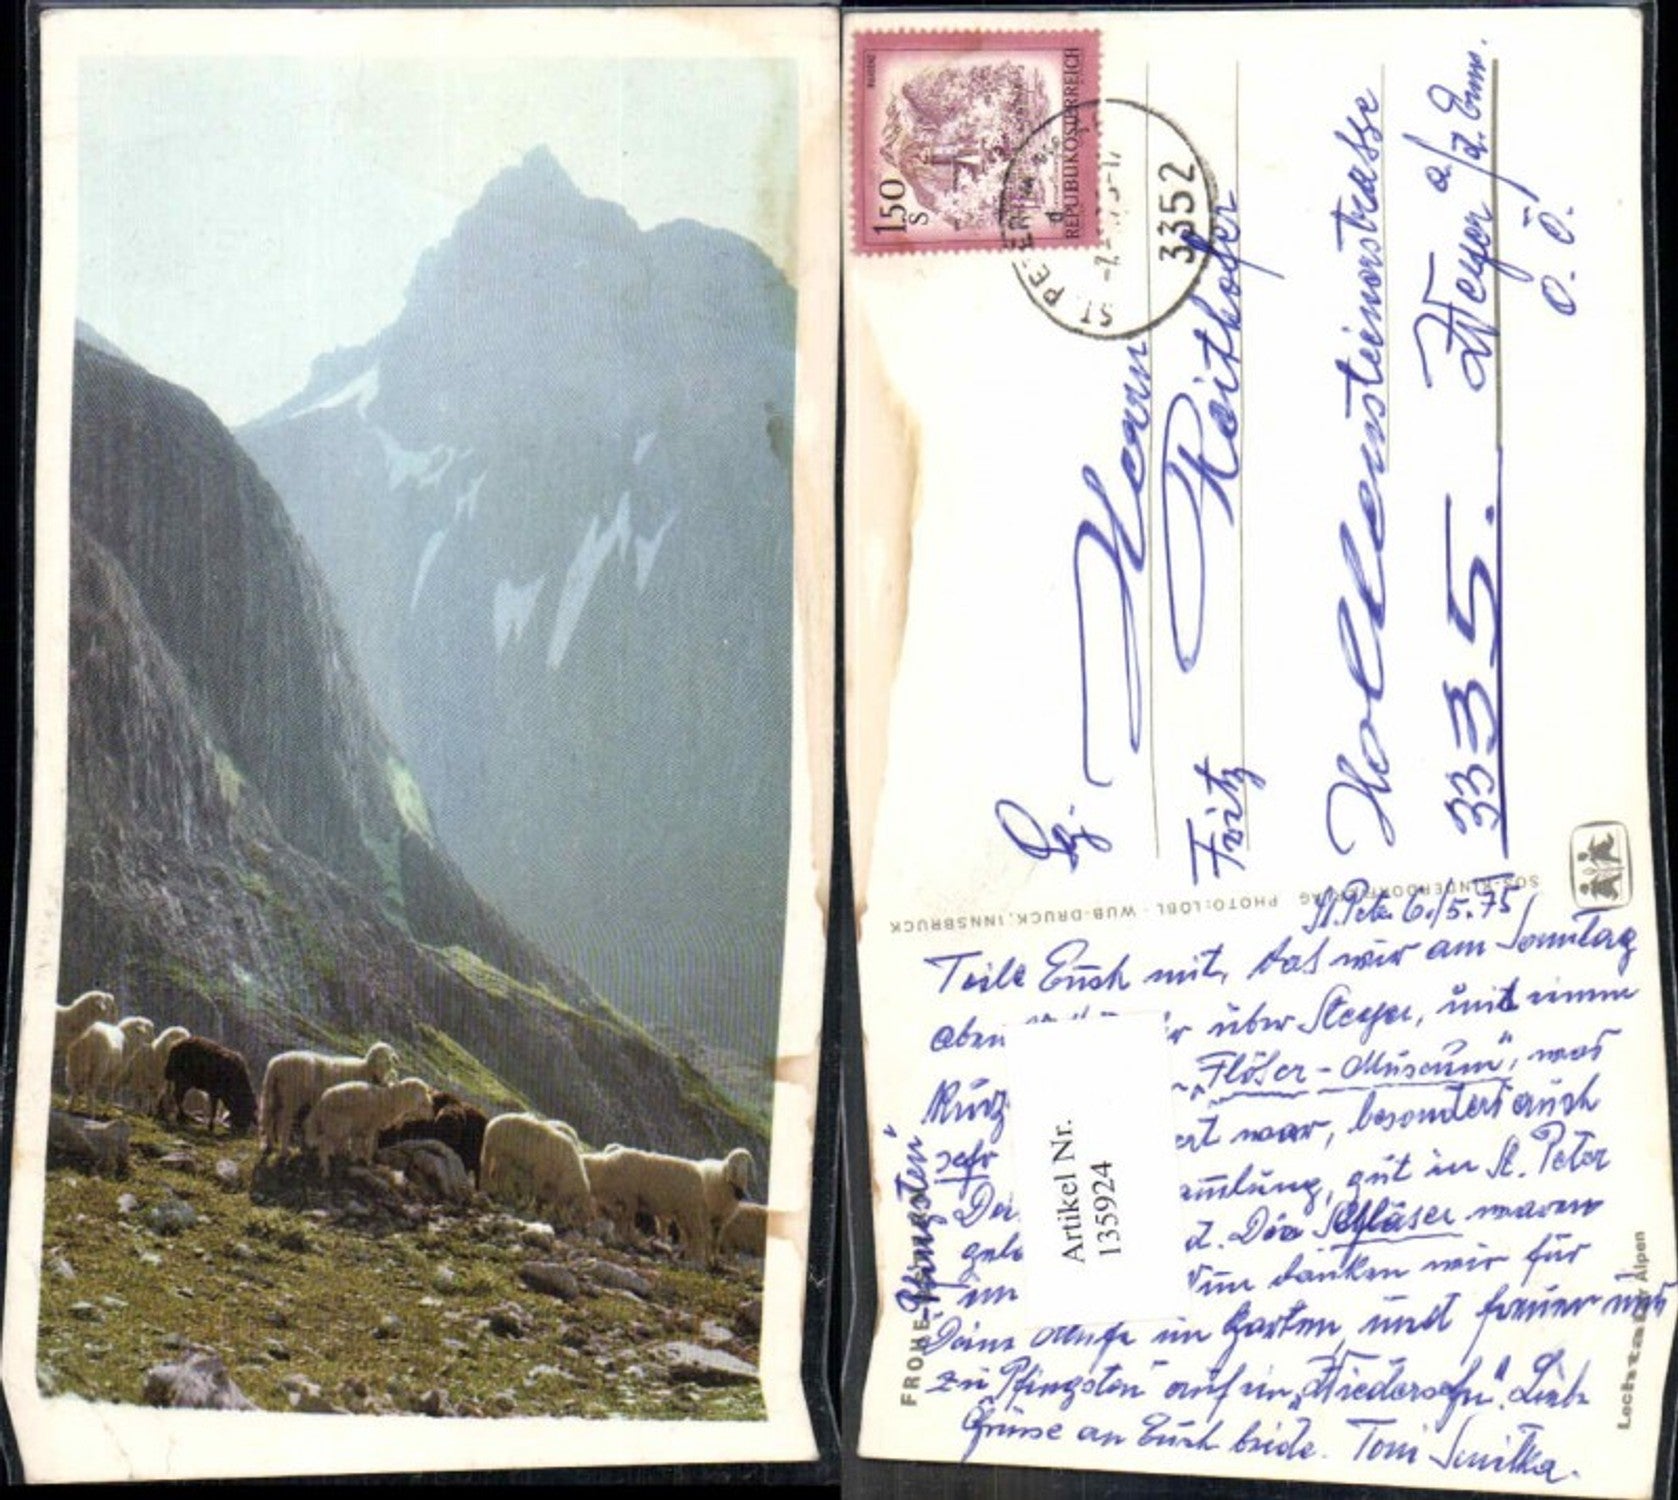 1.50
S
REPUBLIK ÖSTERREICH
ST. PETER
3352
Herrn
Fritz Reithofer
Hollensteinerstrasse
3335. Weyer a/d. Enns.
O.Ö.
SOS-KINDERDORFVERLAG PHOTO: LÖBL - WUB-DRUCK, INNSBRUCK
St. Peter 6./5.75
Teile Euch mit, das wir am Sonntag
über Steyer, mit einem
"Flöser-Museum", was
sehr war, besonders auch
gut in St. Peter
Die Schläser waren
danken wir für
Deine Mühe im Garten, und freuen uns
zu Pfingsten auf ein "Wiedersehn". Liebe
Grüsse an Euch beide. Toni Smitka.
FROHE Pfingsten"
Alpen
Artikel Nr.
135924